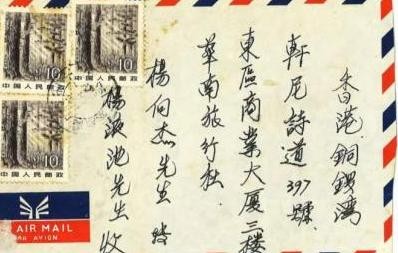 香港銅鑼灣
軒尼詩道397號
東區商業大厦三樓
華南旅行社
楊向杰先生
楊 池先生收
10
中国人民邮政
10
中国人民邮政
10
中国人民邮政
AIR MAIL
PAR AVION